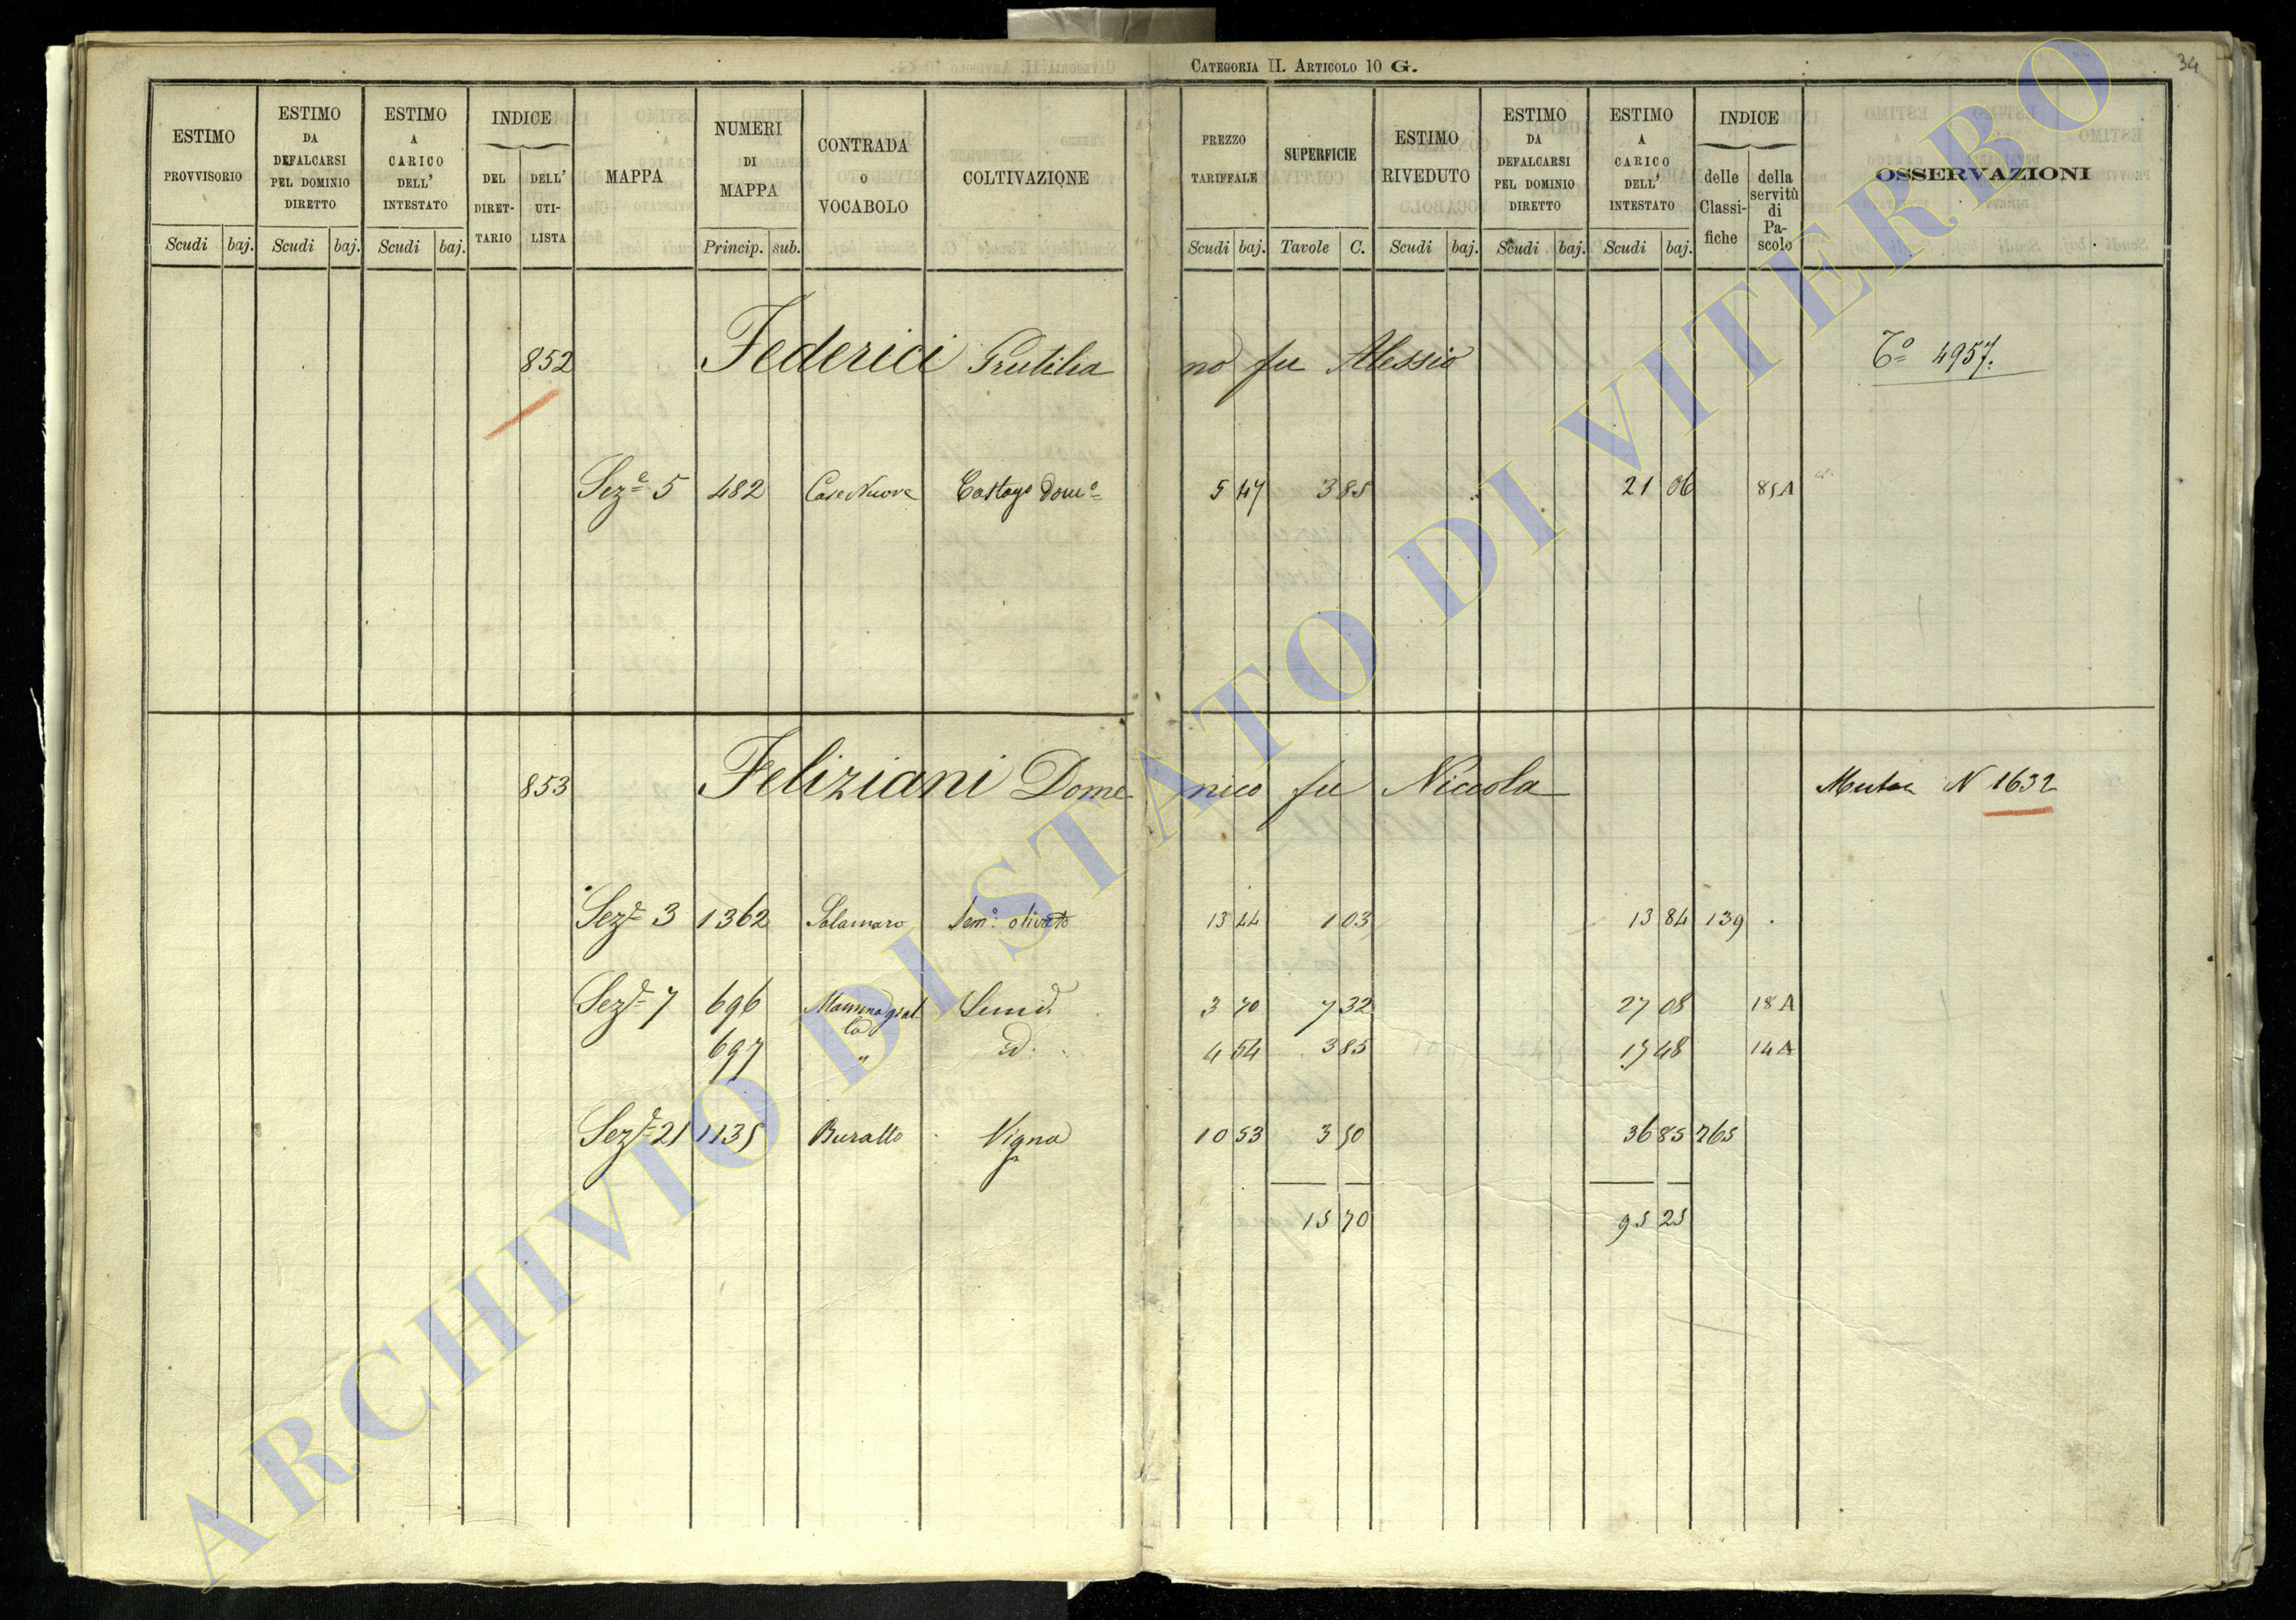 CATEGORIA II. ARTICOLO 10 G.
34
ESTIMO PROVVISORIO Scudi baj.
ESTIMO DA DEFALCARSI PEL DOMINIO DIRETTO Scudi baj.
ESTIMO A CARICO DELL' INTESTATO Scudi baj.
INDICE DEL DIRET-TARIO DELL' UTI-LISTA
MAPPA
NUMERI DI MAPPA Princip. sub.
CONTRADA O VOCABOLO
COLTIVAZIONE
PREZZO TARIFFALE Scudi baj.
SUPERFICIE Tavole C.
ESTIMO RIVEDUTO Scudi baj.
ESTIMO DA DEFALCARSI PEL DOMINIO DIRETTO Scudi baj.
ESTIMO A CARICO DELL' INTESTATO Scudi baj.
INDICE delle Classi-fiche della servitù di Pa-scolo
OSSERVAZIONI
852 Federici Grutilia no fu Alessio Tº 4957.
Sezº 5 482 Case Nuove Castagº Domº 5 47 3 85 21 06 85A
853 Feliziani Dome nico fu Niccola N 1632
Sezº 3 1362 Salamaro Semº olivato 13 44 1 03 13 84 139
Sezº 7 696 Mammagial la 3 70 7 32 27 08 18 A
697 " id. 4 54 3 85 17 48 14 A
Sezº 21 1135 Buratto Vigna 10 53 3 50 36 85 265
15 70 95 25
ARCHIVIO DI STATO DI VITERBO